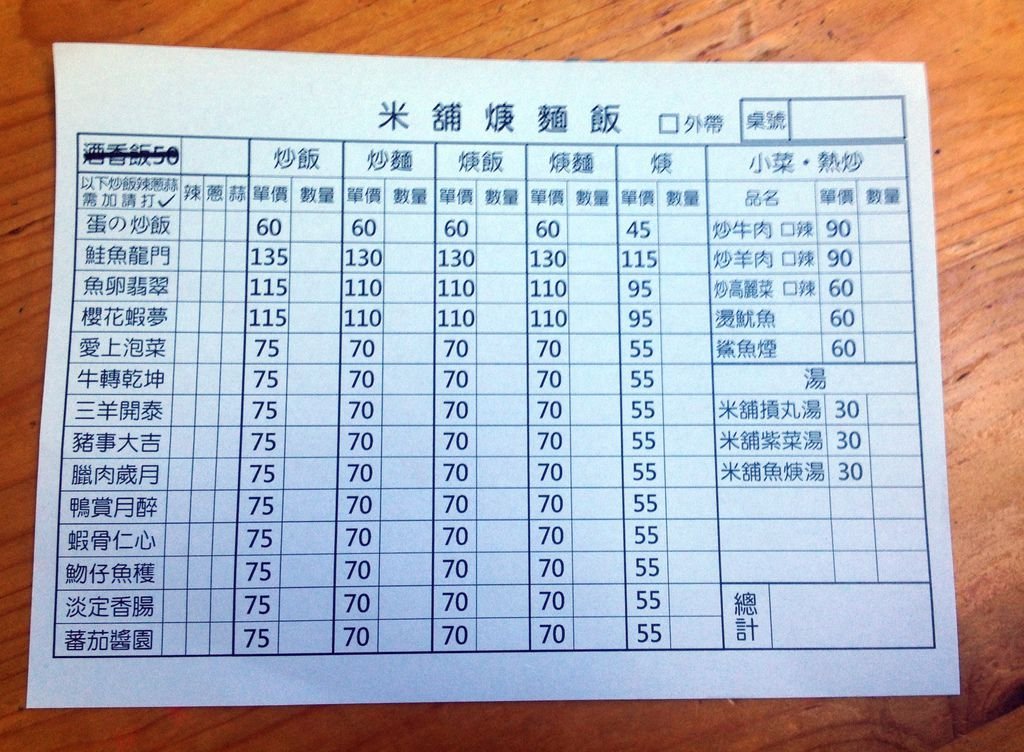 米舖焿麵飯 □外帶 桌號
酒香飯50 炒飯 炒麵 焿飯 焿麵 焿 小菜·熱炒
以下炒飯辣蔥蒜
需加請打✓ 辣 蔥 蒜 單價 數量 單價 數量 單價 數量 單價 數量 單價 數量 品名 單價 數量
蛋の炒飯 60 60 60 60 45 炒牛肉 □辣 90
鮭魚龍門 135 130 130 130 115 炒羊肉 □辣 90
魚卵翡翠 115 110 110 110 95 炒高麗菜 □辣 60
櫻花蝦夢 115 110 110 110 95 燙魷魚 60
愛上泡菜 75 70 70 70 55 鯊魚煙 60
牛轉乾坤 75 70 70 70 55 湯
三羊開泰 75 70 70 70 55 米舖摃丸湯 30
豬事大吉 75 70 70 70 55 米舖紫菜湯 30
臘肉歲月 75 70 70 70 55 米舖魚焿湯 30
鴨賞月醉 75 70 70 70 55
蝦骨仁心 75 70 70 70 55
魩仔魚穫 75 70 70 70 55
淡定香腸 75 70 70 70 55 總計
蕃茄醬園 75 70 70 70 55